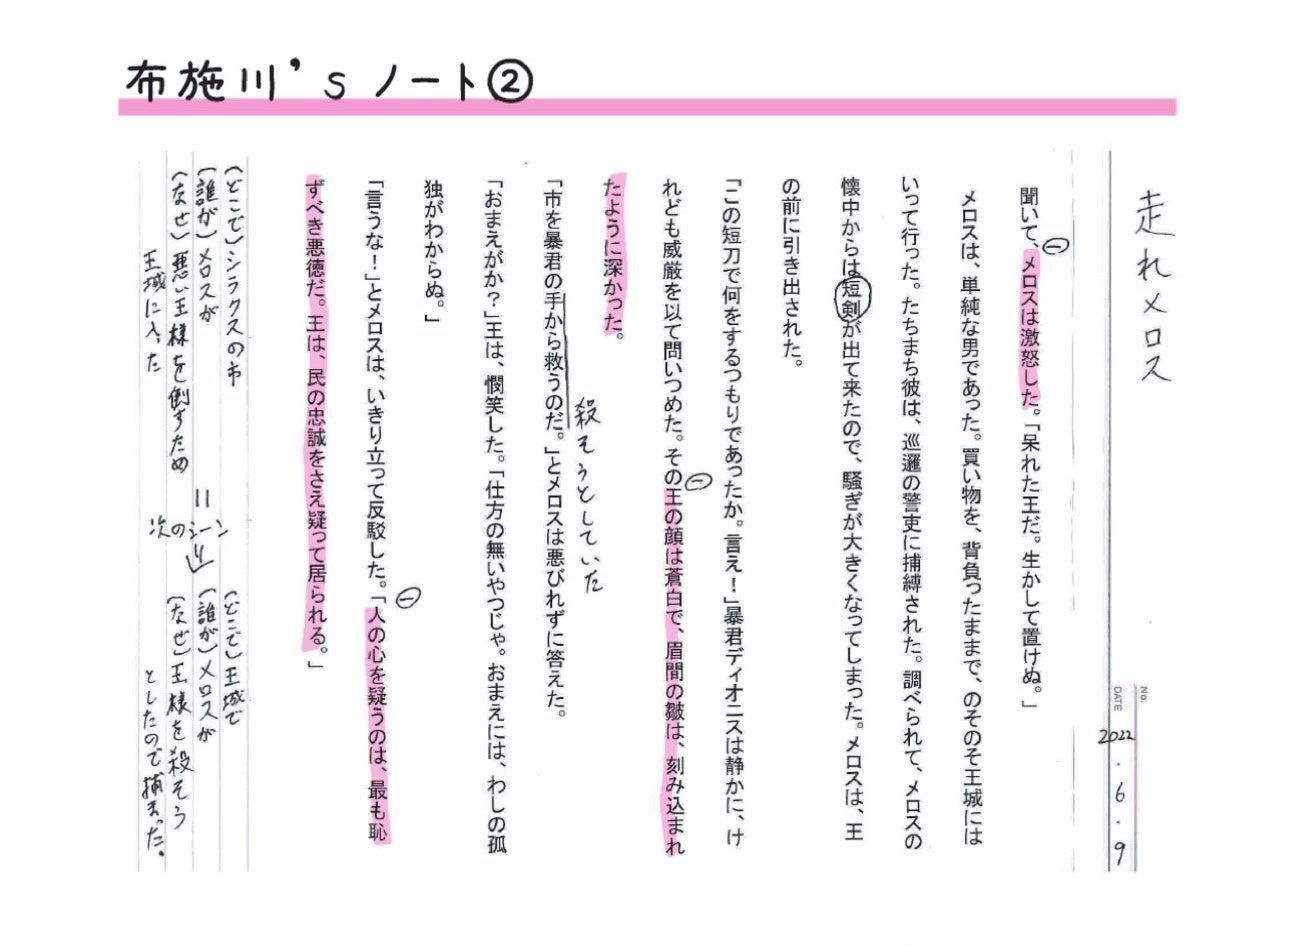 布施川'sノート②
走れメロス
No.
DATE 2022・6・9
聞いて、メロスは激怒した。「呆れた王だ。生かして置けぬ。」
㊀
メロスは、単純な男であった。買い物を、背負ったままで、のそのそ王城には
いって行った。たちまち彼は、巡邏の警吏に捕縛された。調べられて、メロスの
懐中からは短剣が出て来たので、騒ぎが大きくなってしまった。メロスは、王
の前に引き出された。
「この短刀で何をするつもりであったか。言え！」暴君ディオニスは静かに、け
れども威厳を以て問いつめた。その王の顔は蒼白で、眉間の皺は、刻み込まれ
㊀
たように深かった。
「市を暴君の手から救うのだ。」とメロスは悪びれずに答えた。
殺そうとしていた
「おまえがか？」王は、憫笑した。「仕方の無いやつじゃ。おまえには、わしの孤
独がわからぬ。」
「言うな！」とメロスは、いきり立って反駁した。「人の心を疑うのは、最も恥
㊀
ずべき悪徳だ。王は、民の忠誠をさえ疑って居られる。」
(どこで)シラクスの市
(誰が)メロスが
(なぜ)悪い王様を倒すため
王城に入った
=
次のシーン
⇓
(どこで)王城で
(誰が)メロスが
(なぜ)王様を殺そう
としたので捕まった。